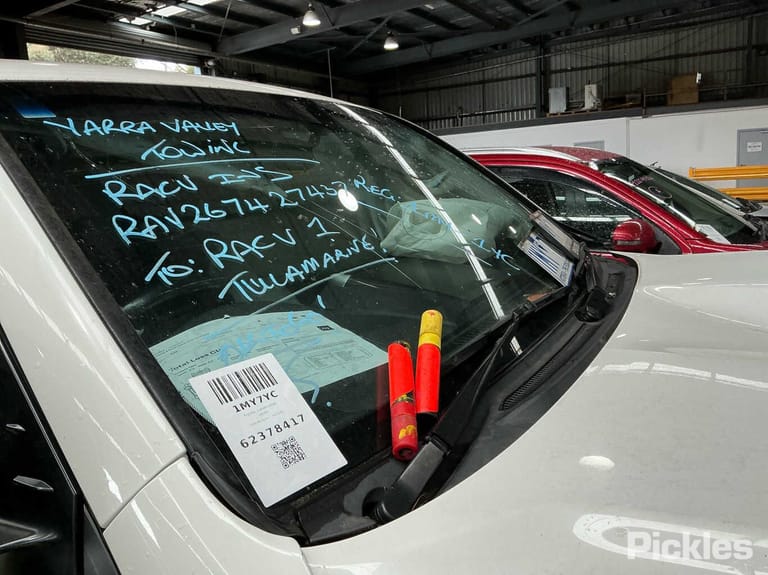 YARRA VALLEY
TOWING
RACV INS
RAV267427457 REG
1YC
TO: RACV 1
TULLAMARINE
Total Loss
1MY7YC
62378417
Pickles